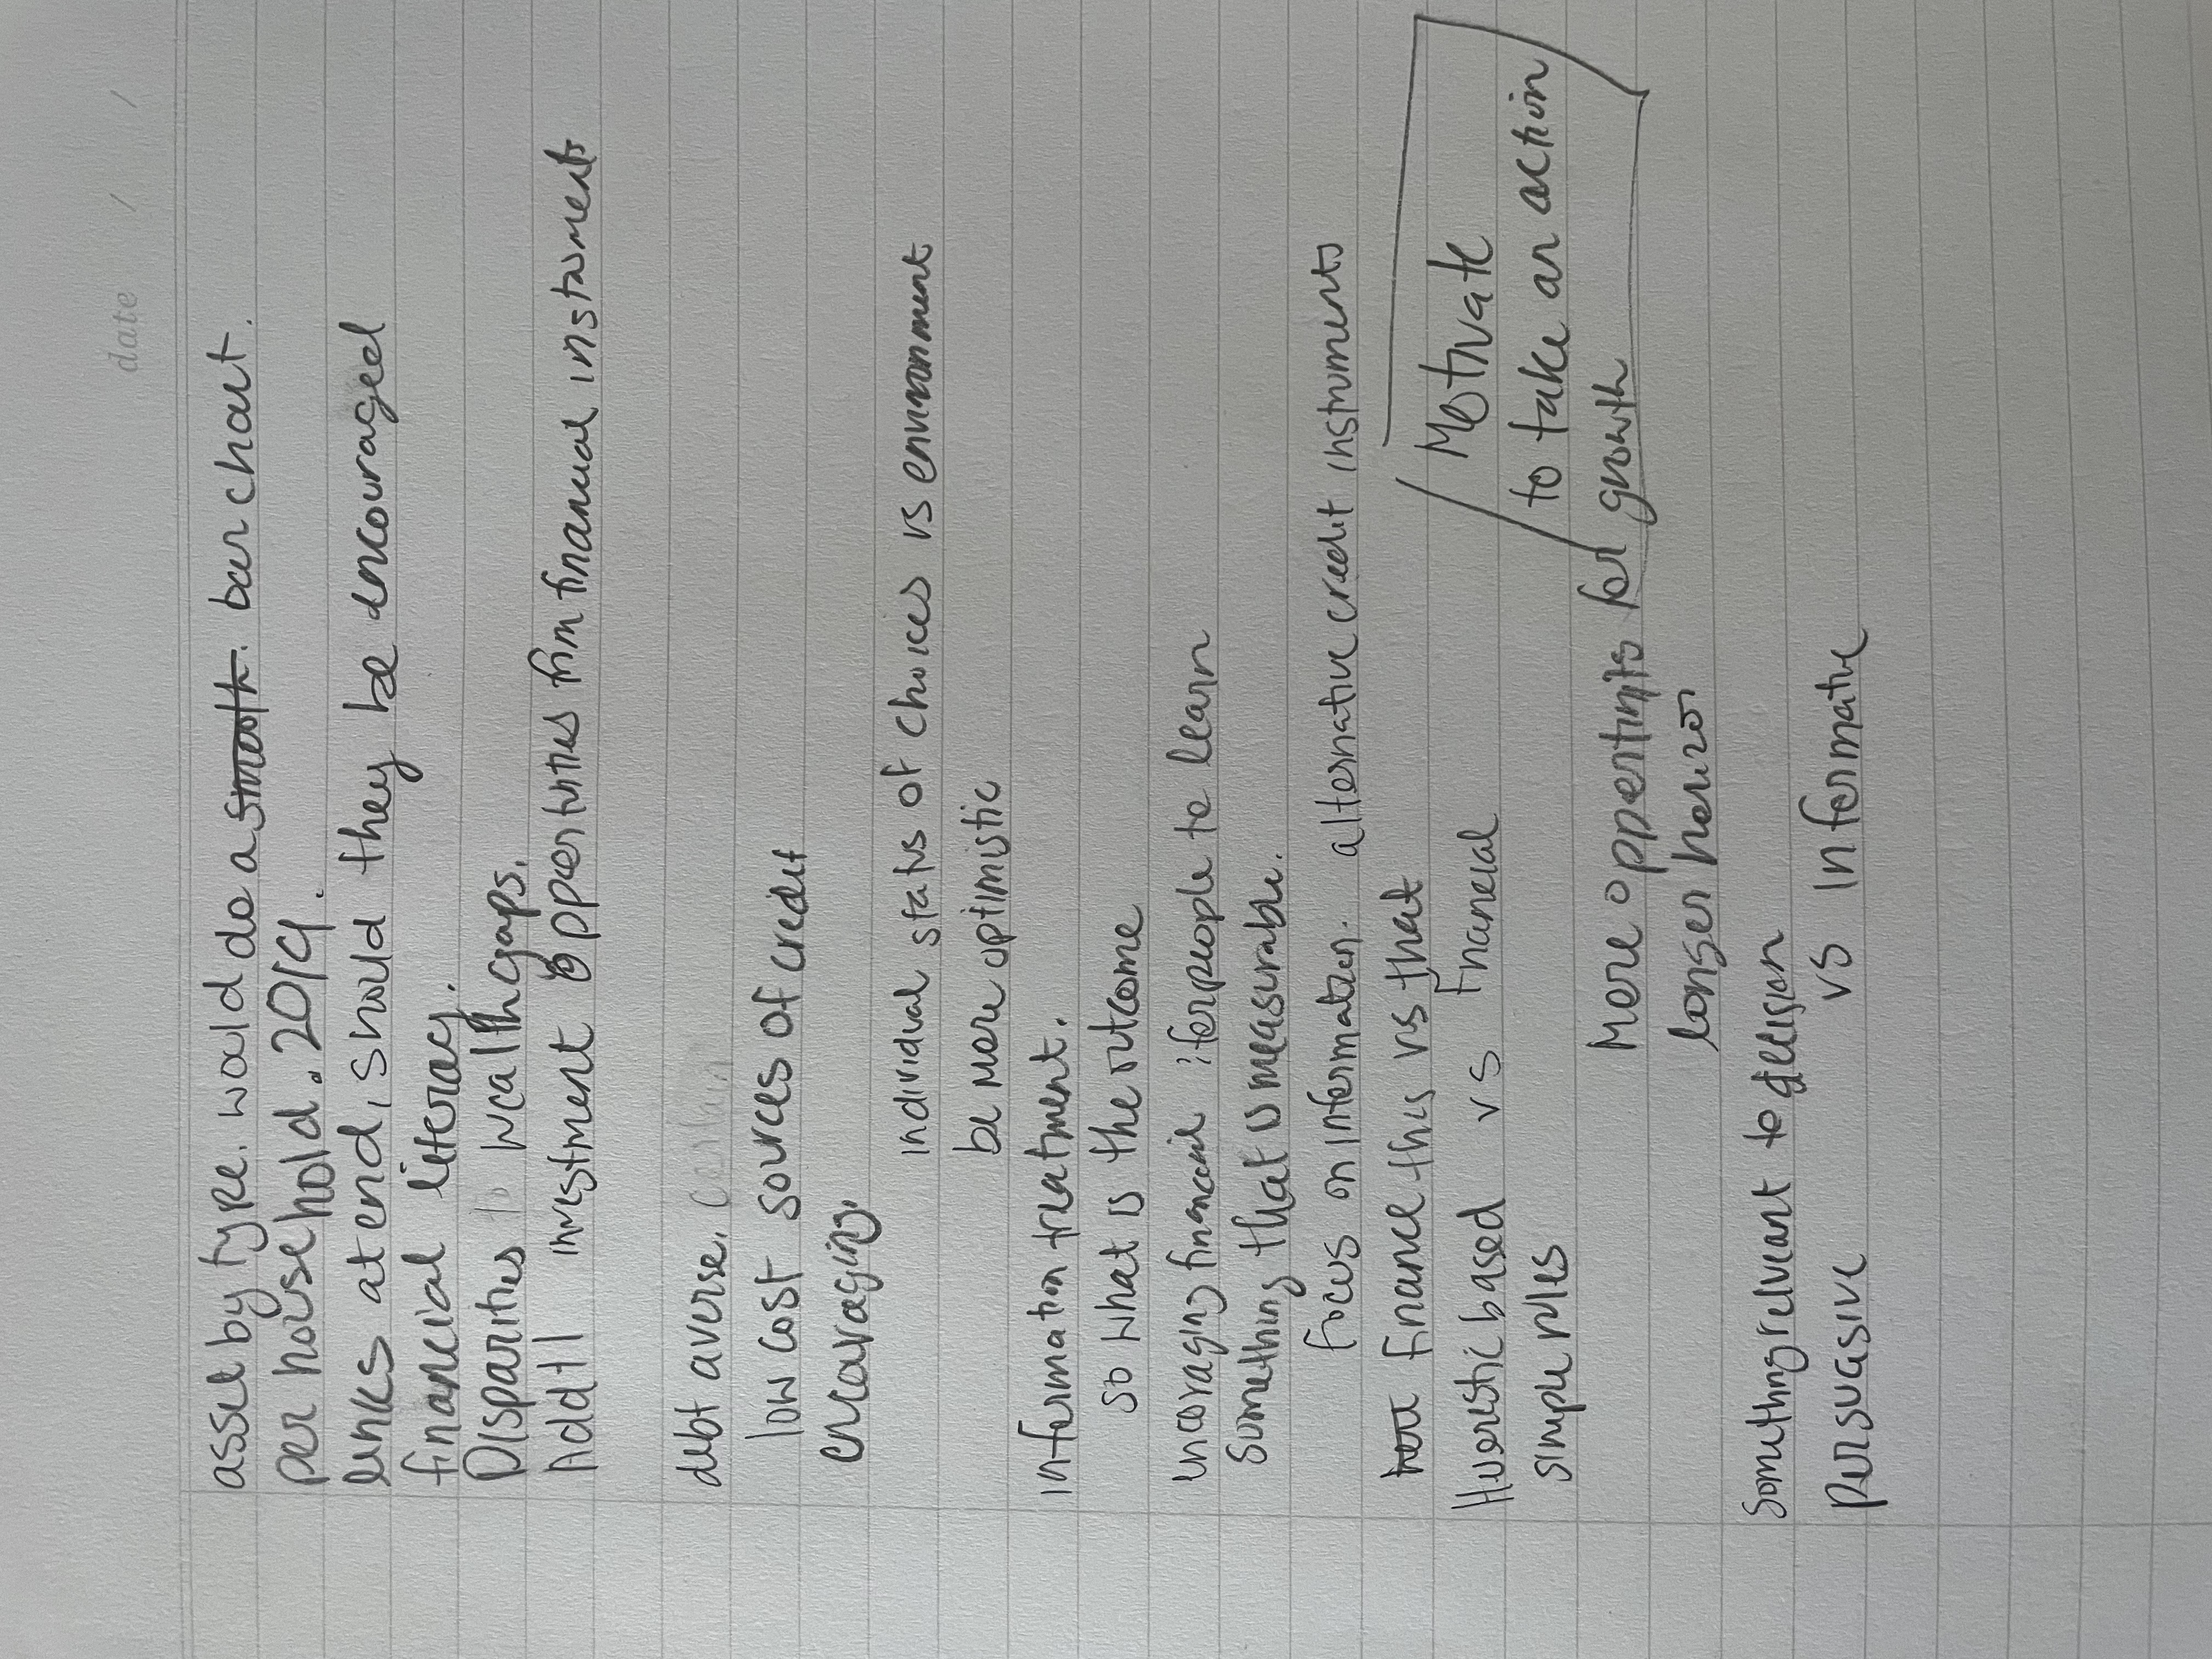 date / /
asset by type. would do a smooth. bar chart.
per household. 2019.
links at end, should they be encouraged
financial literacy.
Disparities wealth gaps.
Add'tl investment opportunities from financial instruments
debt averse. certain
low cost sources of credit
encouraging.
individual status of choices vs environment
be more optimistic
information treatment.
so what is the outcome
encoraging financial : for people to learn
Something that is measurable.
Focus on information. alternative credit instruments
finance this vs that
Huerestic based vs Financial
simple rules
Motivate
to take an action
More for growth
longer horizon
Something relveant to decision
Persuasive vs Informative